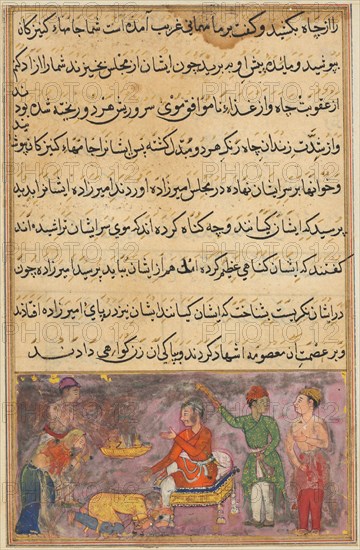 را از چاه بکشید و گفت بر ما مهمانی غریب آمده است شما جامهاء کنیزکان
بپوشید و مایده پیش او برید چون ایشان از مجلس بخیزند شما را آزاد کنم
از عقوبت چاه و از غذاء ناموافق موی سر و ریش هر دو ریخته شده بود
و از شدت زندان چاه رنگ هر دو مبدل کشته پس ایشانرا جامهاء کنیزکان
و خوانها بر سر ایشان نهاده در مجلس امیرزاده اوردند امیرزاده ایشانرا بدید
پرسید که ایشان کیانند و چه کناه کرده اند که موی سر ایشان تراشیده اند
گفتند که ایشان کناهی عظیم کرده اند هم از ایشان بباید پرسید امیرزاده چون
در ایشان نکریست بشناخت که ایشان کیانند ایشان نیز در پای امیرزاده افتادند
و بر عصمت آن معصومه اشهاد کردند و بپاکی آن زن کواهی دادند
PHOTO12